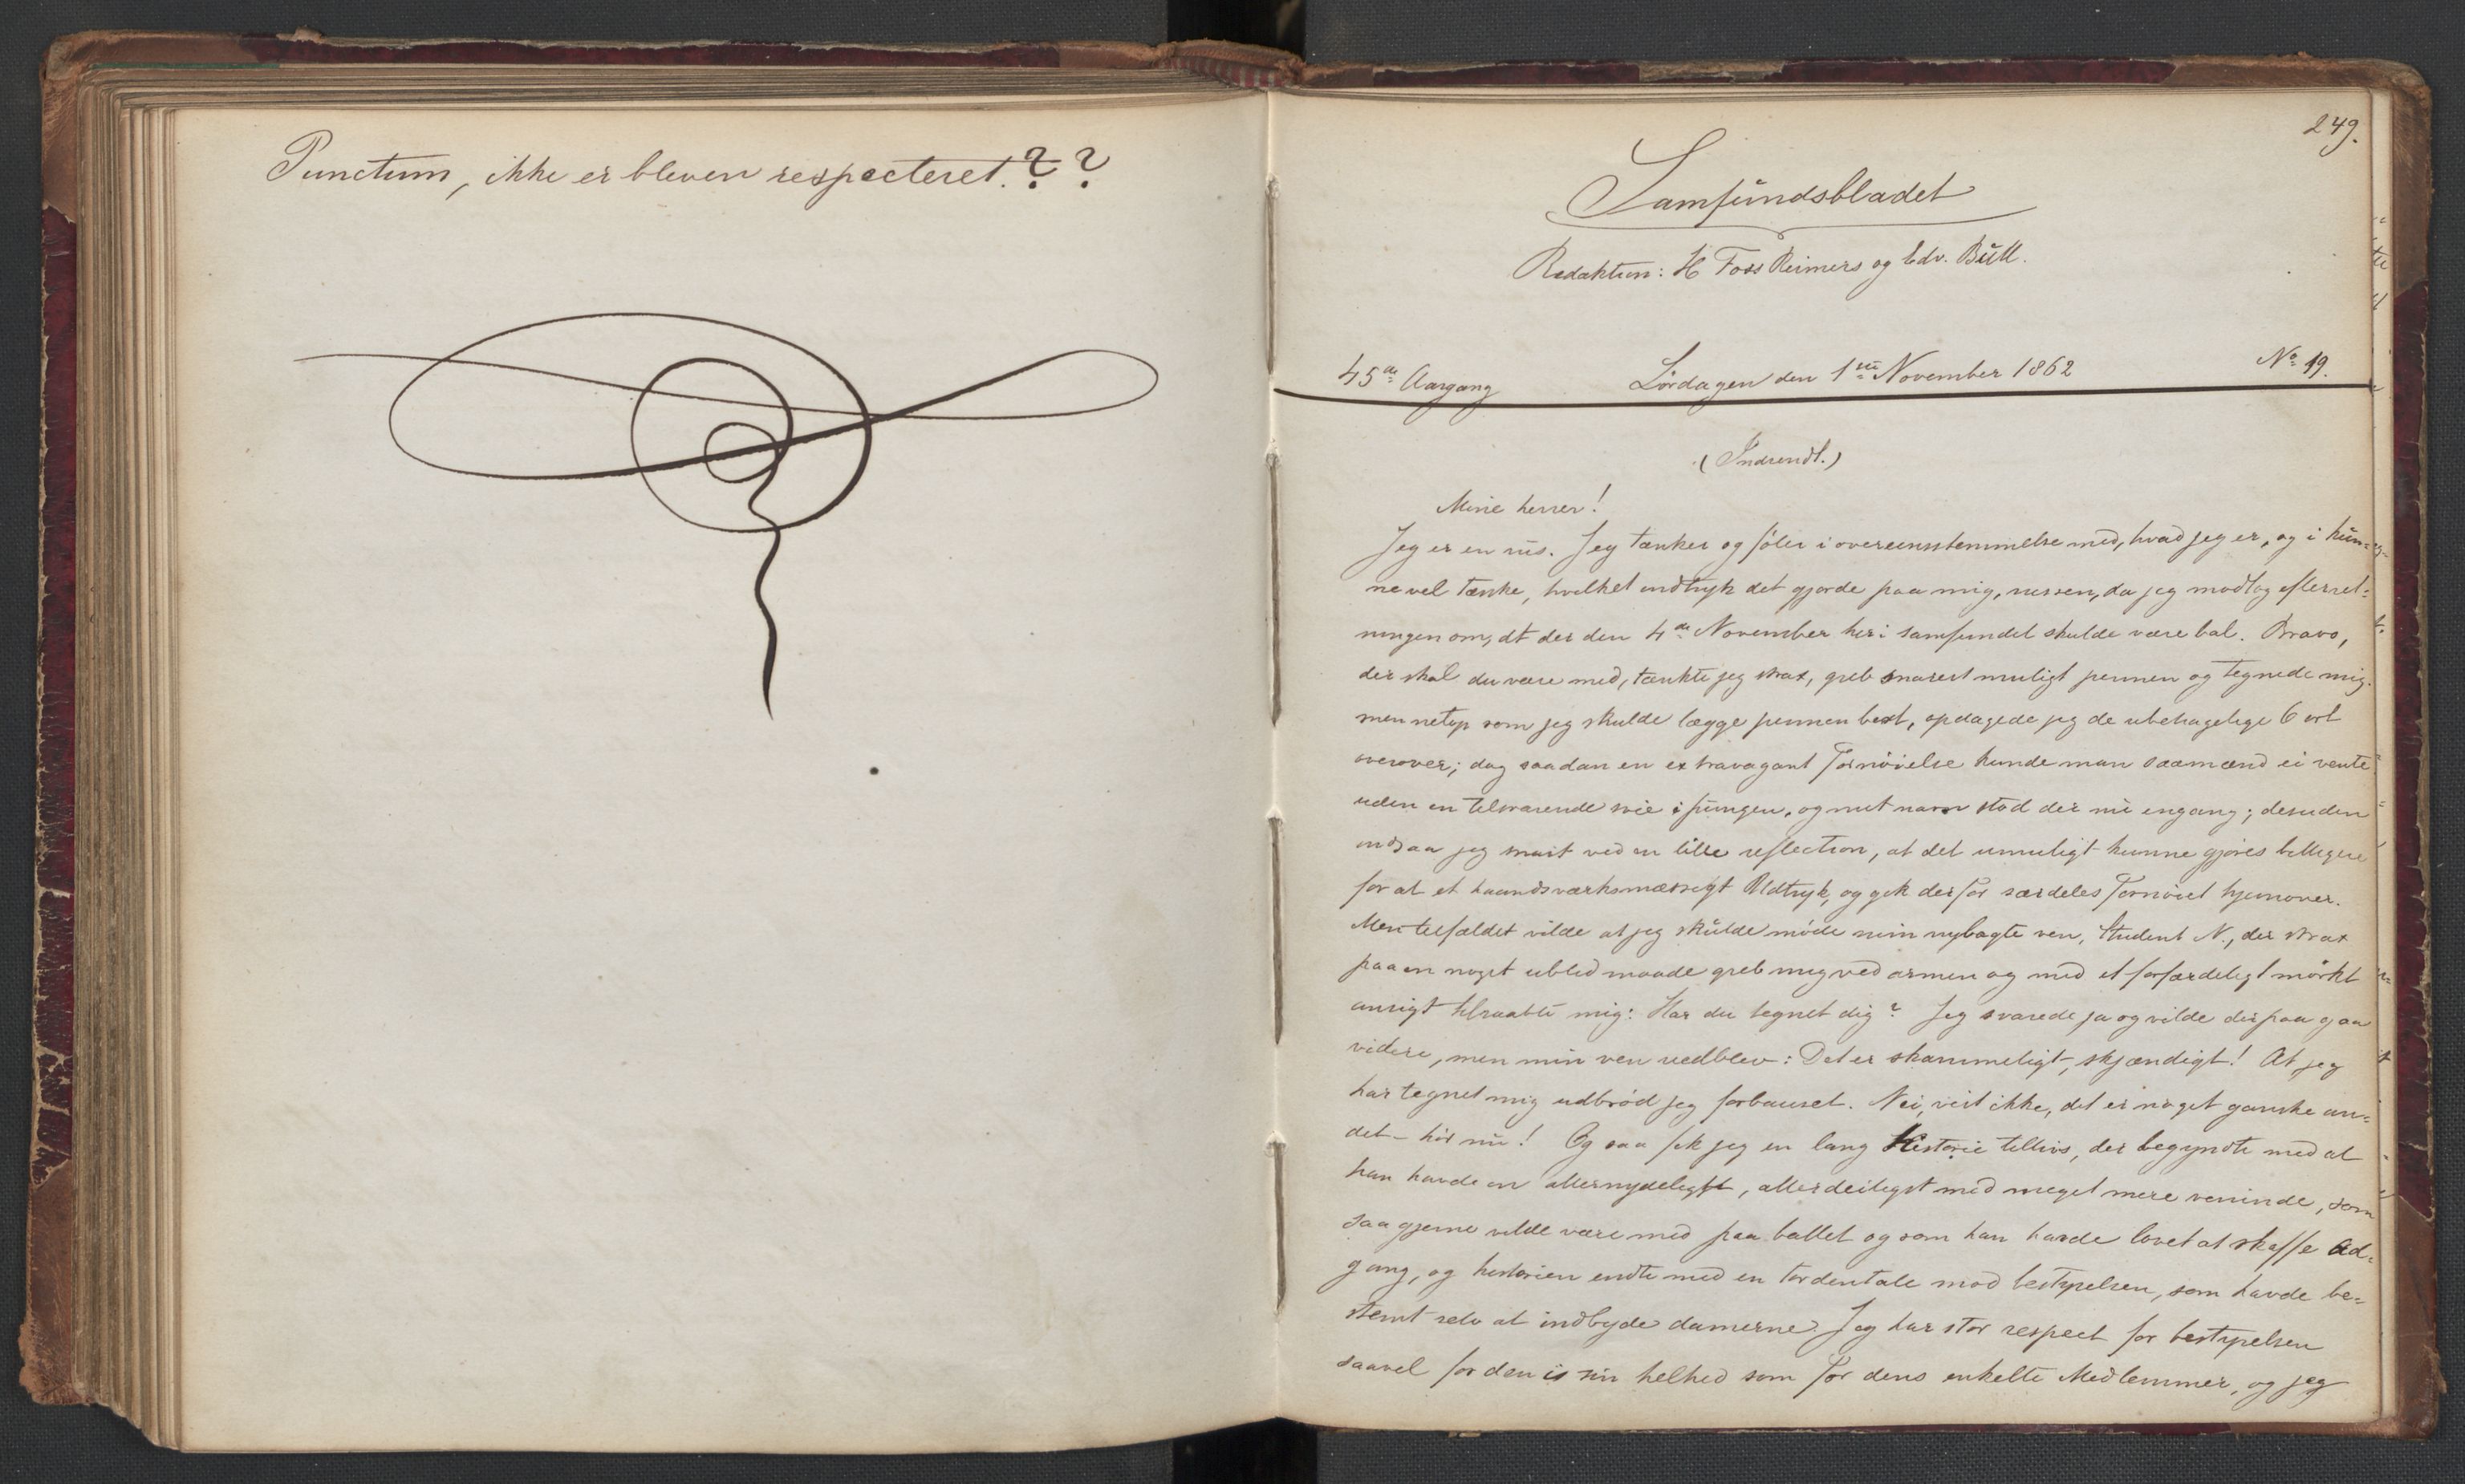 Punctum, ikke er bleven respecteret. ? ?
249.
Samfundsbladet
Redaktion: H Foss Reimers og Edv. Bull.
45de Aargang Lørdagen den 1ste November 1862 No 19.
(Indsendt.)
Mine herrer!
Jeg er en rus. Jeg tænker og føler i overeensstemmelse med, hvad jeg er, og i kun=
ne vel tænke, hvilket indtryk det gjorde paa mig, russen, da jeg modtog efterret=
ningen om, at der den 4de November her i samfundet skulde være bal. Bravo,
der skal du være med, tænkte jeg strax, greb snarest muligt pennen og tegnede mig.
men netop som jeg skulde lægge pennen bort, opdagede jeg de ubehagelige 6 ort
ovenover; dog saadan en extravagant Fornøielse kunde man saamænd ei vente
uden en tilsvarende svie i pungen, og mit navn stod der nu engang; desuden
indsaa jeg snart ved en lille reflection, at det umuligt kunne gjøres billigere
for at et haandsværksmæssigt Udtryk, og gik derfor særdeles fornøiet hjemover.
Men tilfældet vilde at jeg skulde møde min nybagte ven, Student N., der strax
paa en noget ublid maade greb mig ved armen og med et forfærdeligt mørkt
ansigt tilraabte mig: Har du tegnet dig? Jeg svarede ja og vilde derpaa gaa
videre, men min ven vedblev: Det er skammeligt, skjændigt! At jeg
har tegnet mig udbrød jeg forbauset. Nei, vist ikke, det er noget ganske an=
det – hør nu! Og saa fik jeg en lang Historie tillivs, der begyndte med at
han havde en allernydeligst, allerdeiligst med meget mere veninde, som
saa gjerne vilde være med paa ballet og som han havde lovet at skaffe ad=
gang, og historien endte med en tordentale mod bestyrelsen, som havde be=
stemt selv at indbyde damerne. Jeg har stor respect for bestyrelsen
saavel for den i sin helhed som for dens enkelte Medlemmer, og jeg